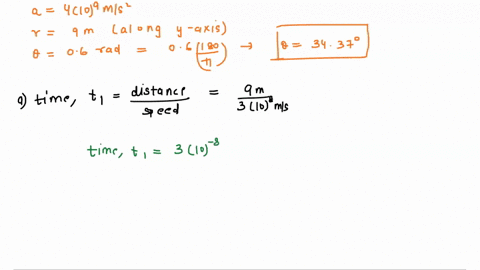 a = 4(10)⁹ m/s²
r = 9m (along y-axis)
θ = 0.6 rad = 0.6(180/π) → θ = 34.37°
a) time, t₁ = distance/speed = 9m/3(10)⁸ m/s
time, t₁ = 3(10)⁻⁸